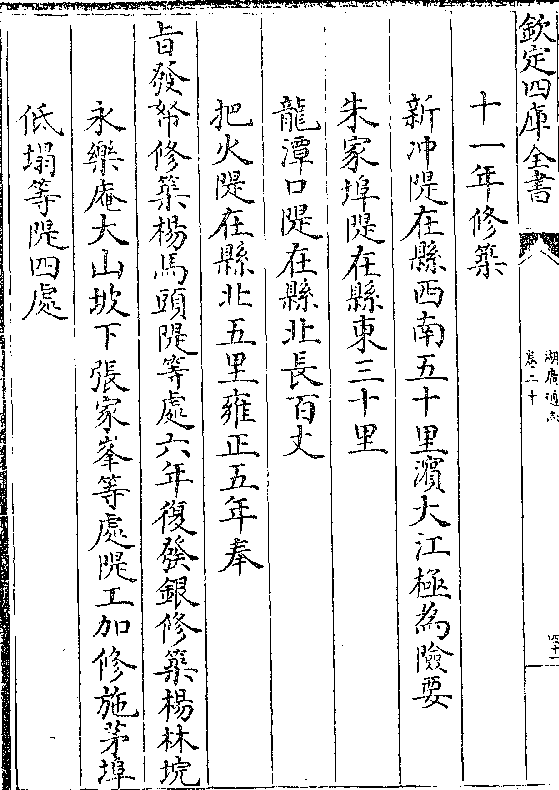 欽定四庫全書
湖廣通志
卷二十
四十一
十一年修築
新冲隄在縣西南五十里濱大江極為險要
朱家埠隄在縣東三十里
龍潭口隄在縣北長百丈
把火隄在縣北五里雍正五年奉
旨發帑修築楊馬頭隄等處六年復發銀修築楊林垸
永樂庵大山坡下張家峯等處隄工加修施茅埠
低塌等隄四處